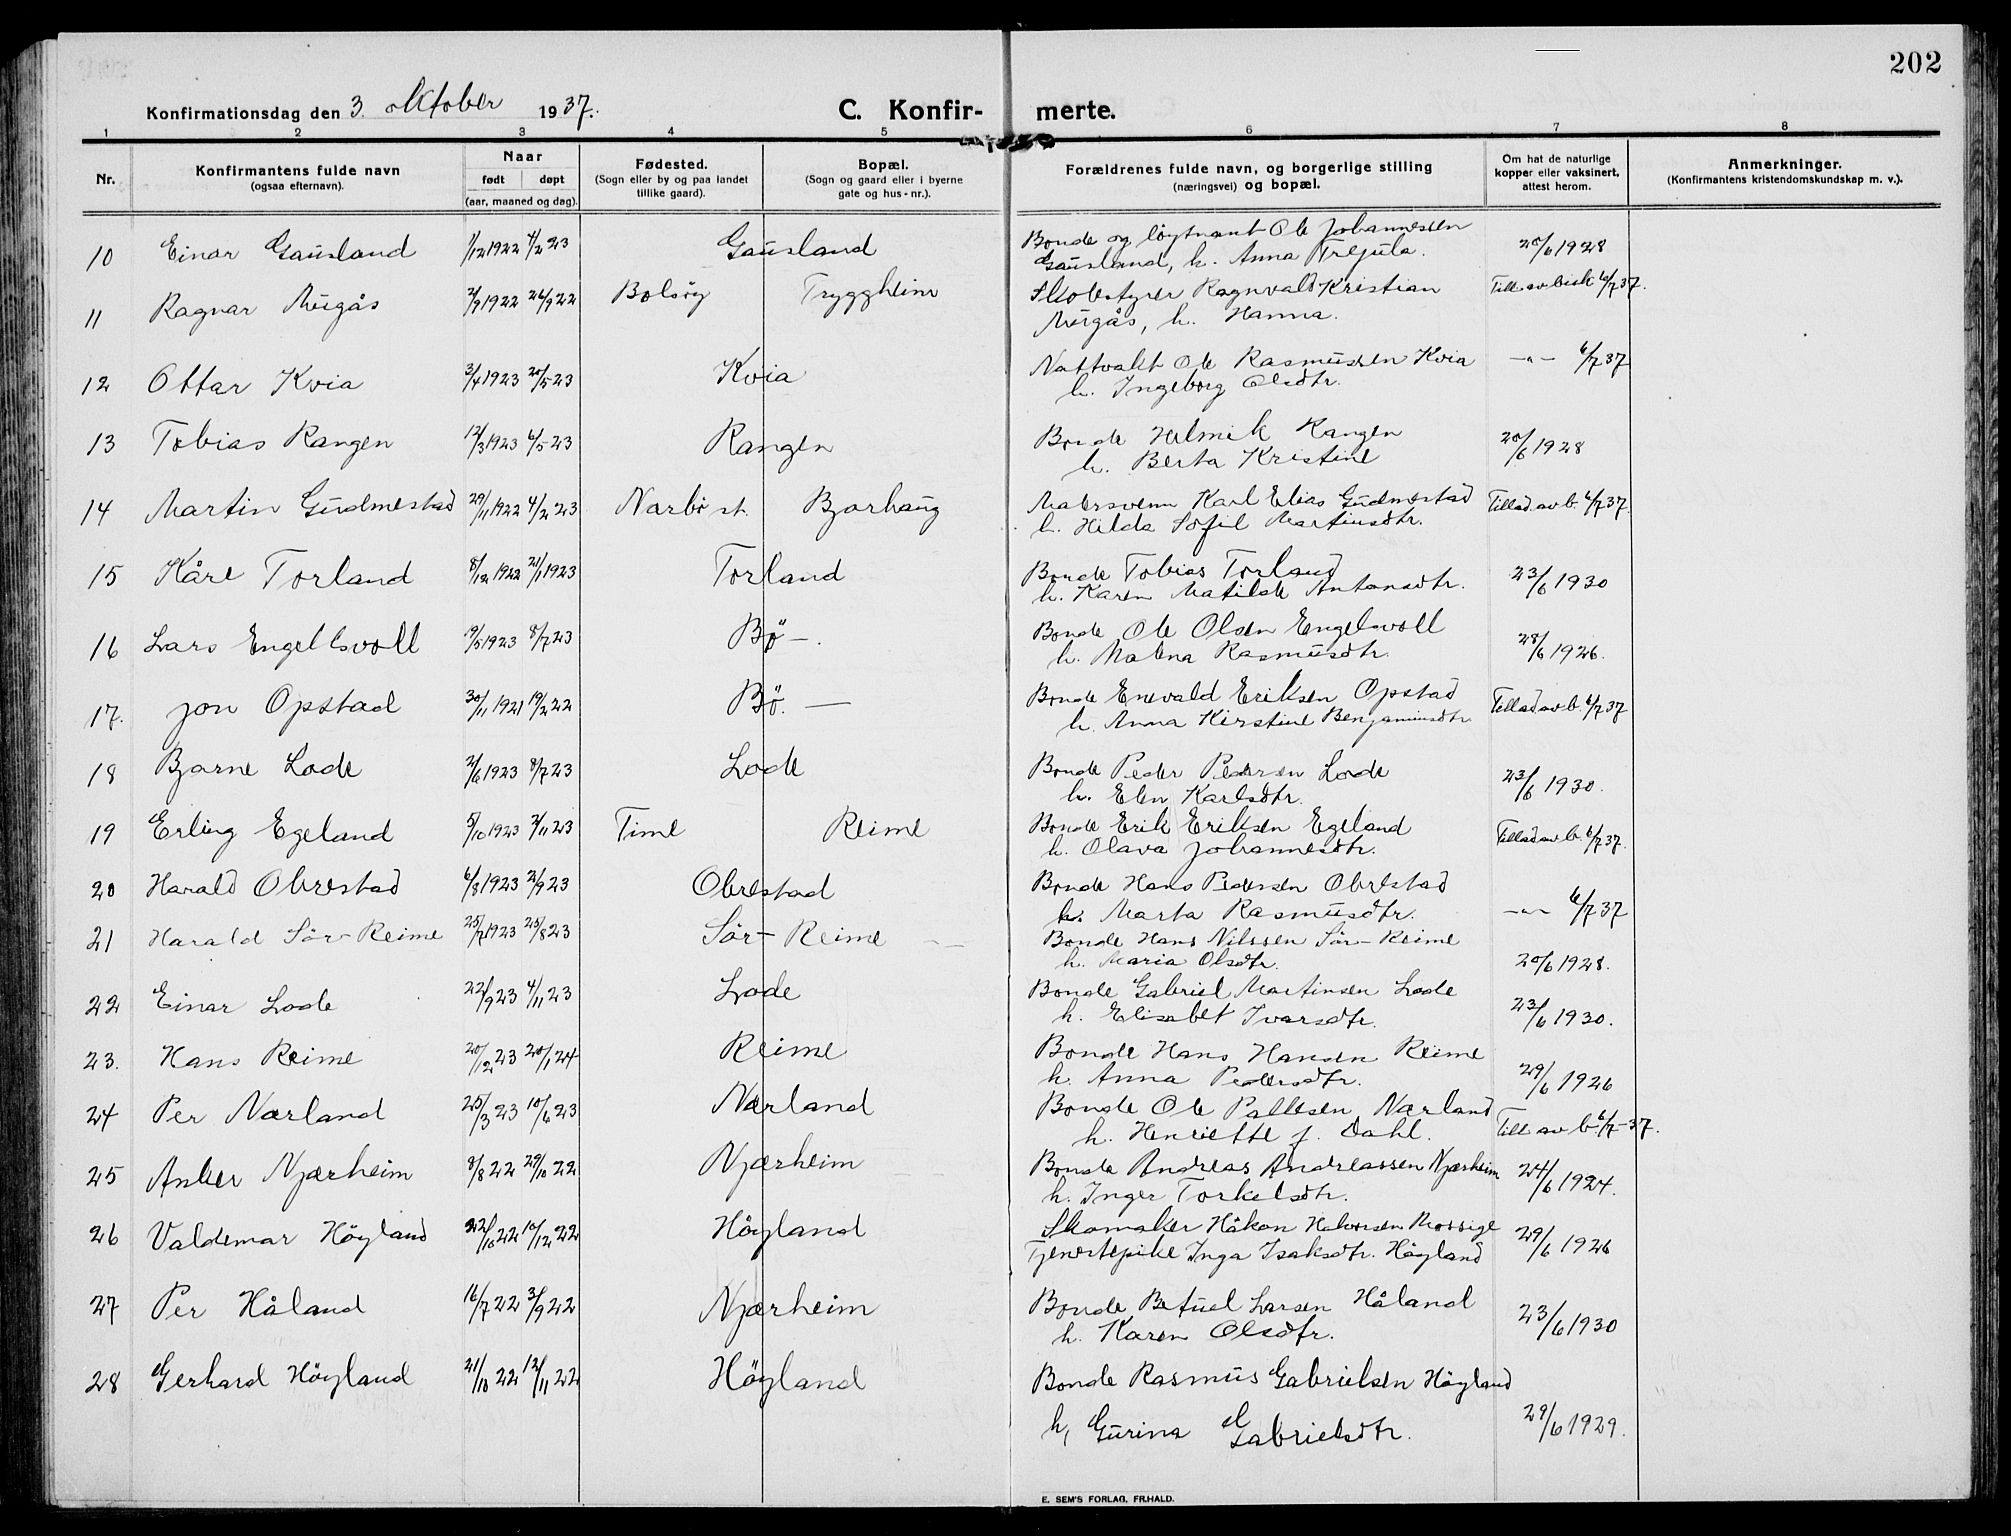 202
Konfirmationsdag den 3. oktober 1937. C. Konfir- merte.
1 2 3 4 5 6 7 8
Nr.
Konfirmantens fulde navn
(ogsaa efternavn).
Naar
født døpt
(aar, maaned og dag).
Fødested.
(Sogn eller by og paa landet
tillike gaard).
Bopæl.
(Sogn og gaard eller i byerne
gate og hus-nr.).
Forældrenes fulde navn, og borgerlige stilling
(næringsvei) og bopæl.
Om hat de naturlige
kopper eller vaksinert,
attest herom.
Anmerkninger.
(Konfirmantens kristendomskundskap m. v.).
10 Einar Gausland 1/12 1922 4/2 23 Gausland Bonde og löytnant Ole Johannessen
Gausland, h. Anna 20/6 1928
11 Ragnar 2/9 1922 26/9 22 Bolsöy Tryggheim Skolestyrer Ragnvald Kristian
h. Hanna. Till. av bisk 6/7 37.
12 Ottar Kvia 3/4 1923 20/5 23 Kvia Nattvakt Ole Rasmussen Kvia
h. Ingeborg Olsdtr. -"- 6/7 37
13 Tobias Rangen 12/3 1923 6/5 23 Rangen Bonde Helmik Rangen
h. Berta Kristine 20/6 1928
14 Martin Gudmestad 29/11 1922 4/2 23 Nærbö st. Bjorhaug Malersvenn Karl Elias Gudmestad
h. Hilda Sofie Martinsdtr. Tillad. av b. 6/7 37.
15 Kåre Torland 8/12 1922 21/1 1923 Torland Bonde Tobias Torland
h. Karen Matilde Antonsdtr. 23/6 1930
16 Lars Engellsvoll 19/5 1923 8/7 23 Bö -. Bonde Ole Olsen Engelsvoll
h. Malena Rasmusdtr. 28/6 1926.
17. Jon Opstad 30/11 1921 19/2 22 Bö. - Bonde Enevald Eriksen Opstad
h. Anna Kirstine Benjaminsdtr Tillad av b. 6/7 37
18 Bjarne Lode 2/6 1923 8/7 23 Lode Bonde Peder Pedersen Lode
h. Elen Karlsdtr. 23/6 1930.
19 Erling Egeland 5/10 1923 3/11 23 Time Reime Bonde Erik Eriksen Egeland
h. Olava Johannesdtr. Tillad av b. 6/7 37.
20 Harald Obrestad 6/8 1923 2/9 23 Obrestad Bonde Hans Pedersen Obrestad
h. Marta Rasmusdtr. -"- 6/7 37
21 Harald Sör-Reime 25/7 1923 25/8 23 Sör-Reime -- Bonde Hans Nilssen Sör-Reime
h. Maria Olsdtr. 20/6 1928.
22 Einar Lode 22/9 23 4/11 23 Lode Bonde Gabriel Martinsen Lode
h. Elisabet Ivarsdtr. 23/6 1930.
23. Hans Reime 20/12 23 20/1 24 Reime Bonde Hans Hansen Reime
h. Anna Pedersdtr. 29/6 1926
24 Per Nærland 25/3 23 10/6 23 Nærland Bonde Ole Pallesen Nærland
h. Henriette f. Dahl. Till av b. 6/7-37.
25 Anker Njærheim 8/8 22 29/10 22 Njærheim Bonde Andreas Andreassen Njærheim
h. Inger Torkelsdtr. 24/6 1924.
26 Valdemar Höyland 22/10 22 10/12 22 Höyland Skomaker Håkon Mossige
Tjenestepike Inga Isaksdtr. Höyland 29/6 1926
27 Per Håland 16/7 22 3/9 22 Njærheim Bonde Betuel Larsen Håland
h. Karen Olsdtr. 23/6 1930
28 Gerhard Höyland 21/10 22 12/11 22 Höyland Bonde Rasmus Gabrielsen Höyland
h, Gurina Gabrielsdtr. 29/6 1929.
E. SEM'S FORLAG, FR.HALD.